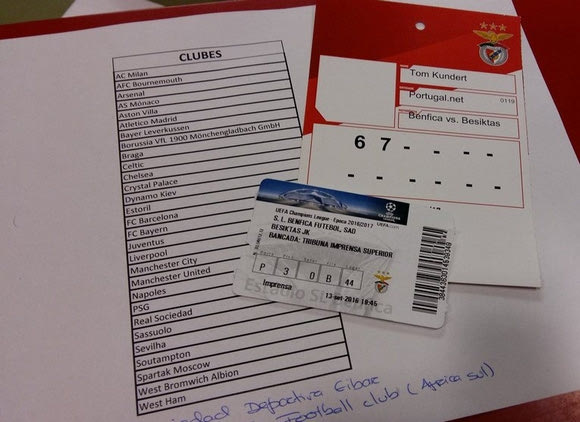 CLUBES
AC Milan
AFC Bournemouth
Arsenal
AS Monaco
Aston Villa
Atletico Madrid
Bayer Leverkussen
Borussia Vfl. 1900 Mönchengladbach GmbH
Braga
Celtic
Chelsea
Crystal Palace
Dynamo Kiev
Estoril
FC Barcelona
FC Bayern
Juventus
Liverpool
Manchester City
Manchester United
Napoles
PSG
Real Sociedad
Sassuolo
Sevilha
Soutampton
Spartak Moscow
West Bromwich Albion
West Ham
Deportiva Eibar
Football club (Africa Sul)
Tom Kundert
Portugal.net
0119
Benfica vs. Besiktas
6 7 - - - -
- - - - - -
UEFA Champions League - Epoca 2016/2017
S. L. BENFICA FUTEBOL, SAD
BESIKTAS JK
BANCADA: TRIBUNA IMPRENSA SUPERIOR
P 3 0 B 44
Imprensa
13-set-2016 19:45